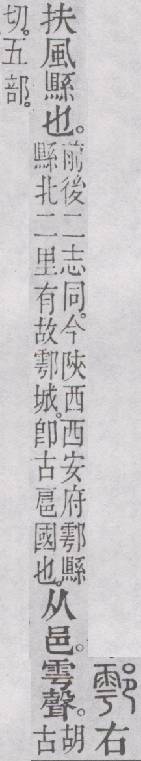 鄠右
扶風縣也。
前後二志同。今陝西西安府鄠縣
縣北二里有故鄠城。卽古扈國也。
从邑。雩聲。
胡
古
切。五部。